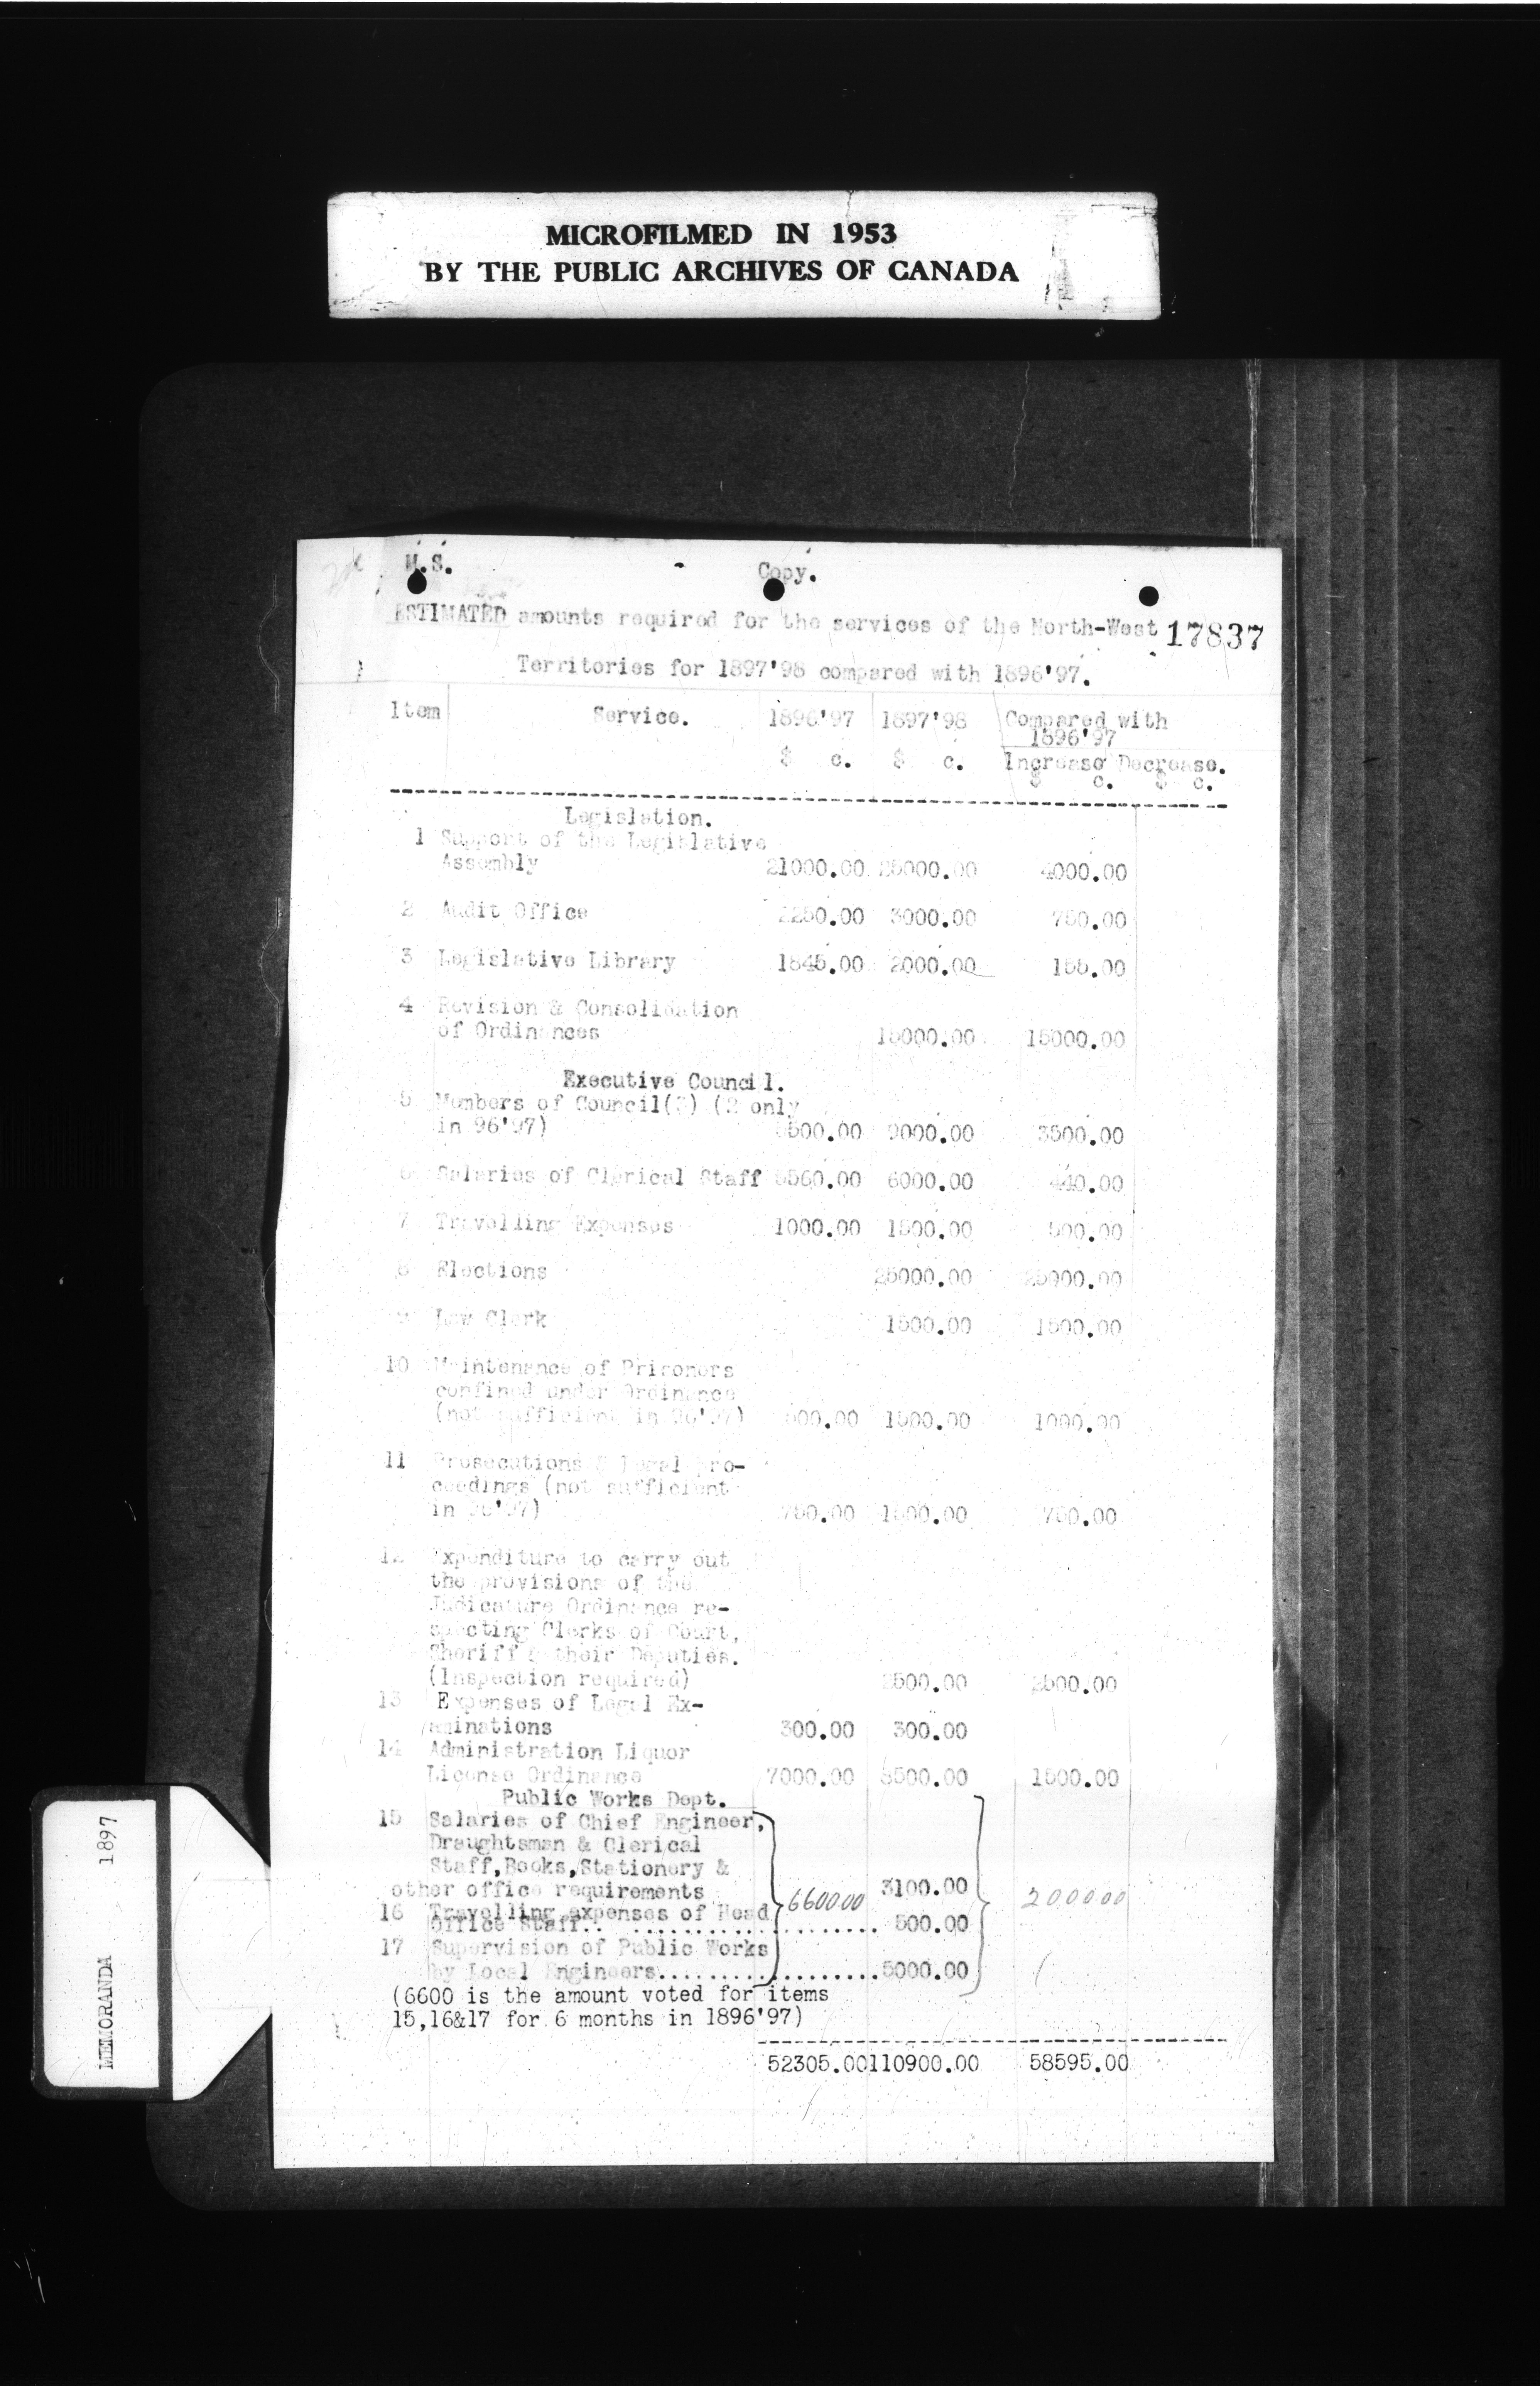 MICROFILMED IN 1953
BY THE PUBLIC ARCHIVES OF CANADA
M.S. Copy.
ESTIMATED amounts required for the services of the North-West 17837
Territories for 1897'98 compared with 1896'97.
Item Service. 1896'97 1897'98 Compared with
1896'97
$ c. $ c. Increase Decrease.
$ c. $ c.
Legislation.
1 Support of the Legislative
Assembly 21000.00 25000.00 4000.00
2 Audit Office 2250.00 3000.00 750.00
3 Legislative Library 1845.00 2000.00 155.00
4 Revision & Consolidation
of Ordinances 15000.00 15000.00
Executive Council.
5 Members of Council(3) (2 only
in 96'97) 5500.00 9000.00 3500.00
6 Salaries of Clerical Staff 5560.00 6000.00 440.00
7 Travelling Expenses 1000.00 1500.00 500.00
8 Elections 25000.00 25000.00
9 Law Clerk 1500.00 1500.00
10 Maintenance of Prisoners
confined under Ordinance
(not sufficient in 96'97) 500.00 1500.00 1000.00
11 Prosecutions & legal pro-
ceedings (not sufficient
in 96'97) 750.00 1500.00 750.00
12 Expenditure to carry out
the provisions of the
Judicature Ordinance re-
specting Clerks of Court,
Sheriff & their Deputies.
(Inspection required) 2500.00 2500.00
13 Expenses of Legal Ex-
aminations 300.00 300.00
14 Administration Liquor
License Ordinance 7000.00 8500.00 1500.00
Public Works Dept.
15 Salaries of Chief Engineer,
Draughtsman & Clerical
Staff,Books,Stationery &
other office requirements 6600.00 3100.00 2000 00
16 Travelling expenses of Head
Office Staff.. .................... 500.00
17 Supervision of Public Works
by Local Engineers..................5000.00
(6600 is the amount voted for items
15,16&17 for 6 months in 1896'97)
52305.00 110900.00 58595.00
MEMORANDA 1897